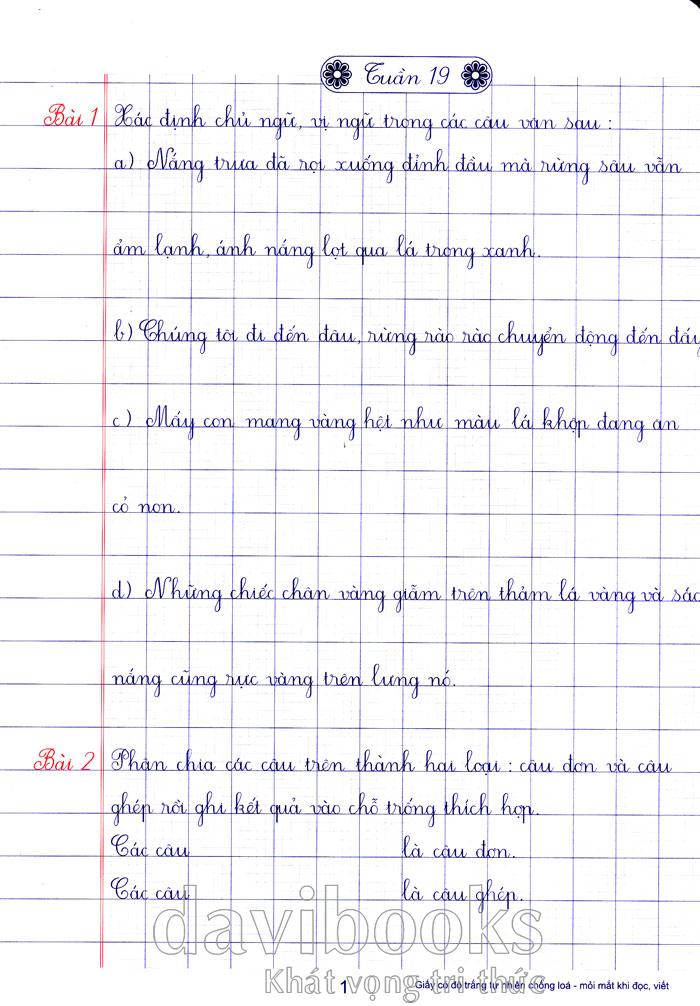 Tuần 19
Bài 1 Xác định chủ ngữ, vị ngữ trong các câu văn sau :
a) Nắng trưa đã rọi xuống đỉnh đầu mà rừng sâu vẫn
ẩm lạnh, ánh nắng lọt qua lá trong xanh.
b) Chúng tôi đi đến đâu, rừng rào rào chuyển động đến đấy
c) Mấy con mang vàng hệt như màu lá khộp đang ăn
cỏ non.
d) Những chiếc chân vàng giẫm trên thảm lá vàng và sắc
nắng cũng rực vàng trên lưng nó.
Bài 2 Phân chia các câu trên thành hai loại : câu đơn và câu
ghép rồi ghi kết quả vào chỗ trống thích hợp.
Các câu là câu đơn.
Các câu là câu ghép.
davibooks
Khát vọng tri thức
1 Giấy có độ trắng tự nhiên chống loá - mỏi mắt khi đọc, viết